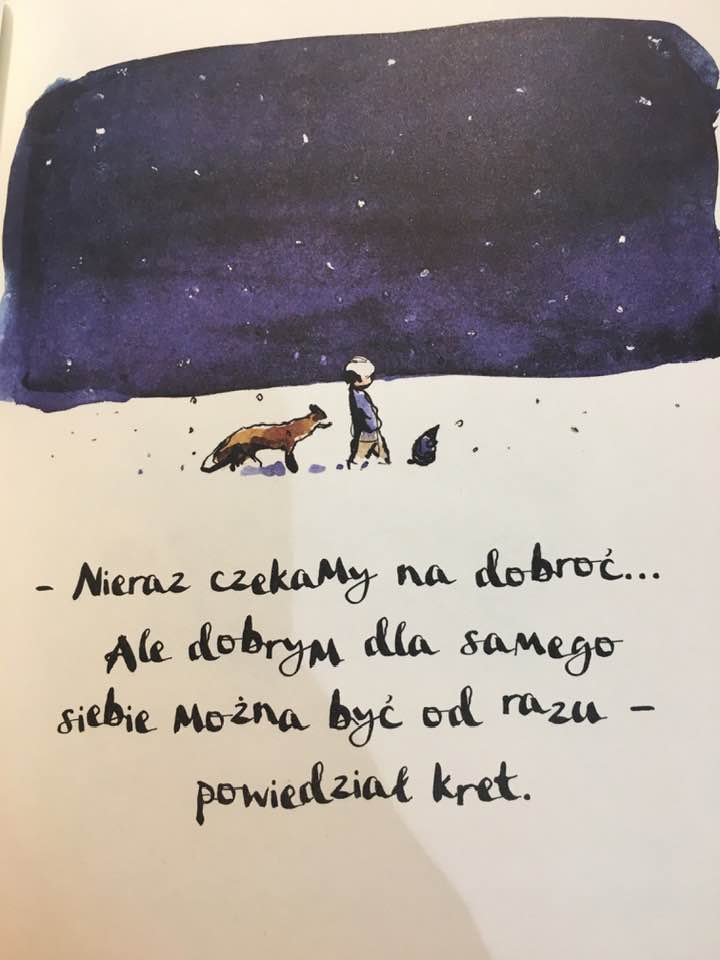 - Nieraz czekaMy na dobroć...
Ale dobryM dla saMego
siebie Można być od razu -
powiedział kret.